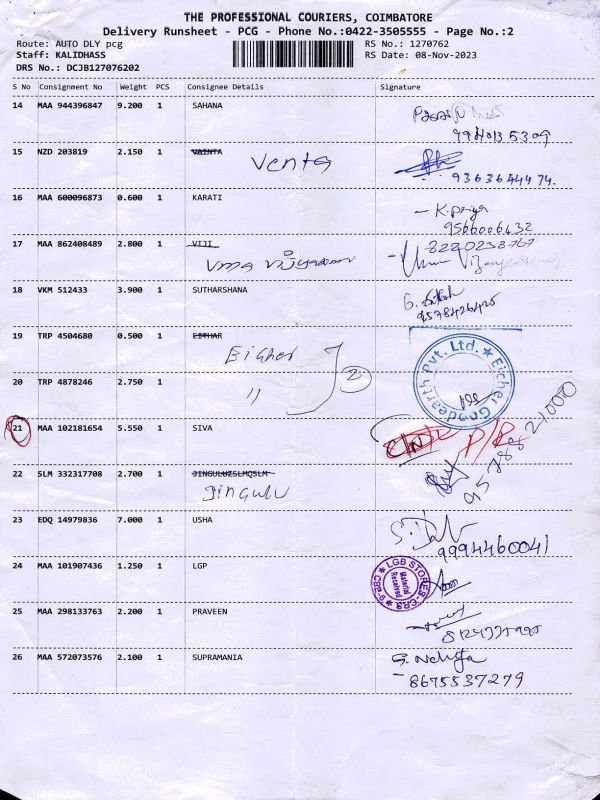 THE PROFESSIONAL COURIERS, COIMBATORE
Delivery Runsheet - PCG - Phone No.:0422-3505555 - Page No.:2
Route: AUTO DLY pcg RS No.: 1270762
Staff: KALIDHASS RS Date: 08-Nov-2023
DRS No.: DCJB127076202
S No Consignment No Weight PCS Consignee Details Signature
14 MAA 944396847 9.200 1 SAHANA
15 NZD 203819 2.150 1 VAINTA
Venta
9363644474.
16 MAA 600096873 0.600 1 KARATI
- K. Priya
9566006432
17 MAA 862408489 2.800 1 VIJI 8220238767
Uma
18 VKM 512433 3.900 1 SUTHARSHANA
9578426425
19 TRP 4504680 0.500 1 EITHAR
Eicher
Eicher Goodearth Pvt. Ltd. ★
20 TRP 4878246 2.750 1
" 2
21 MAA 102181654 5.550 1 SIVA
P/R
22 SLM 332317708 2.700 1 JINGULUZSLMQSLM
Jingulu
23 EDQ 14979836 7.000 1 USHA
9994460041
24 MAA 101907436 1.250 1 LGP
LGB STORES-CRS ★ CBE-9 ★
Material Received
25 MAA 298133763 2.200 1 PRAVEEN
26 MAA 572073576 2.100 1 SUPRAMANIA
8675537279